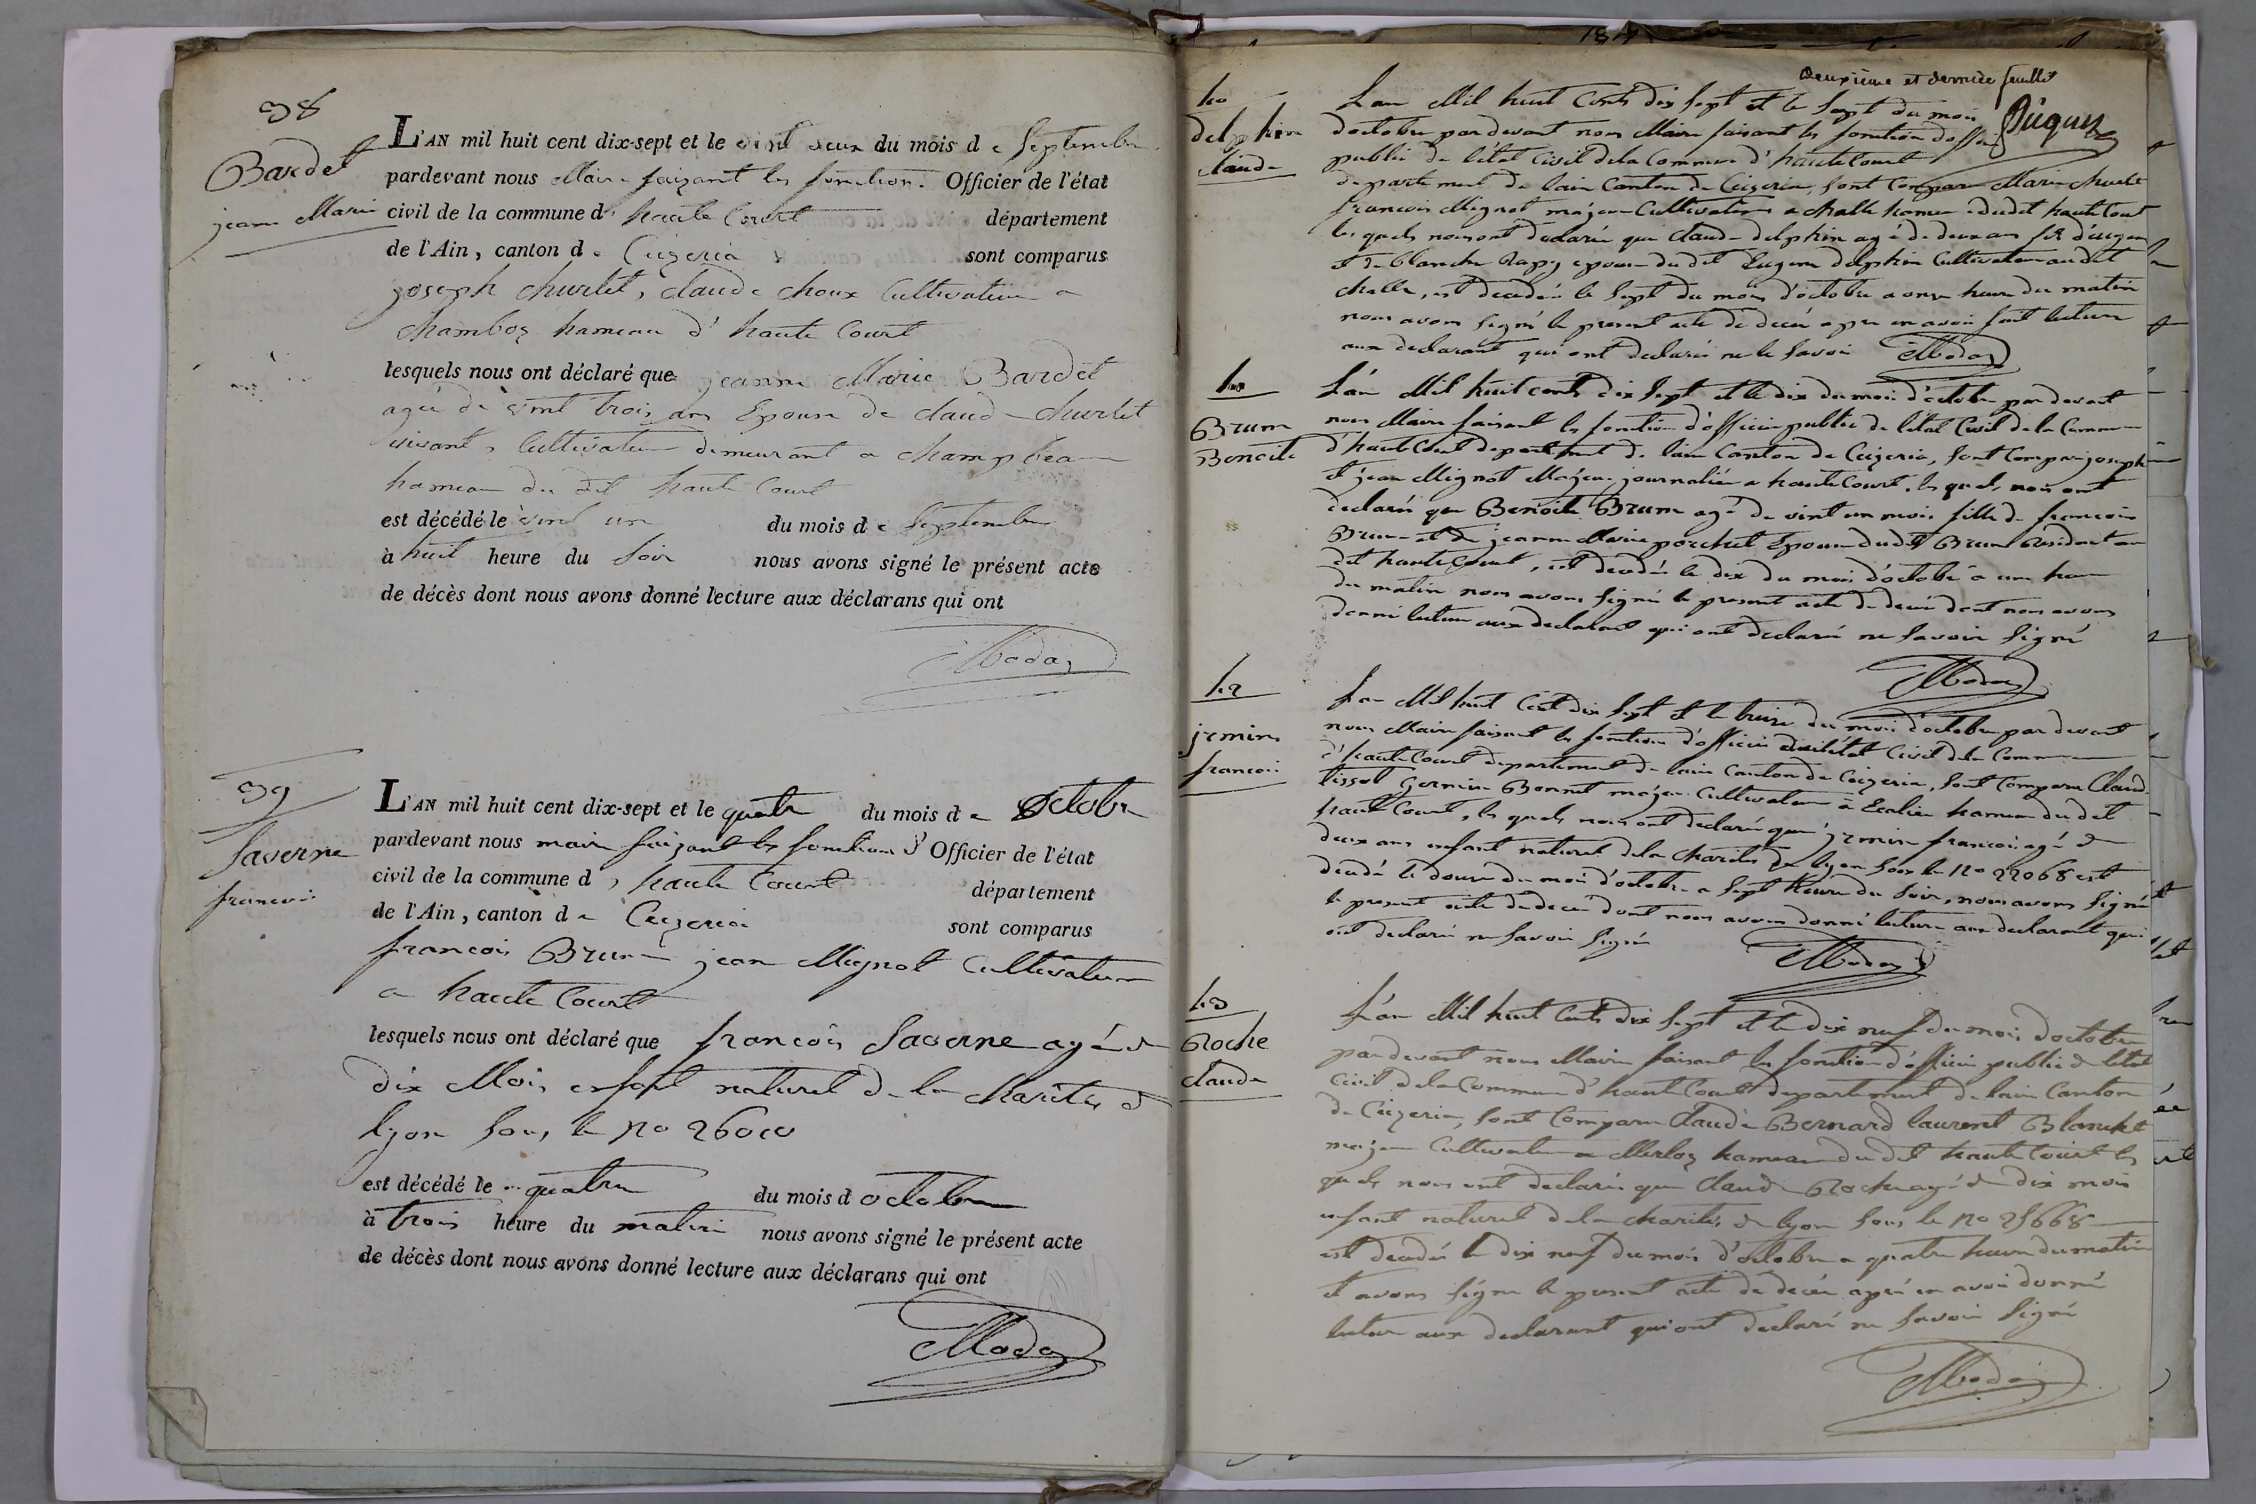 38
Bardet
jeanne Marie
L'AN mil huit cent dix-sept et le vint deux du mois de Septembre
pardevant nous Maire faizant les fonction. Officier de l'état
civil de la commune d' haute Court département
de l'Ain, canton de Ceyzeria sont comparus
joseph churlet, claude choux Cultivateur a
chamboz hameau d' haute Court
lesquels nous ont déclaré que jeanne Marie Bardet
agée de vint trois ans Epouse de claude churlet
vivant, Cultivateur demeurant a champbeau
hameau du dit haute Court
est décédé le vint un du mois de Septembre
à huit heure du Soir nous avons signé le présent acte
de décès dont nous avons donné lecture aux déclarans qui ont
Modaz
39
Saverne
francois
L'AN mil huit cent dix-sept et le quatre du mois de Octobre
pardevant nous maire faizant les fonctions d' Officier de l'état
civil de la commune d' haute Court département
de l'Ain, canton de Ceyzeria sont comparus
francois Brun jean Mignot Cultivateur
a haute Court
lesquels nous ont déclaré que francois Saverne agé de
dix Mois enfant naturel de la charités de
lyon sous le No 26010
est décédé le quatre du mois d octobre
à trois heure du matin nous avons signé le présent acte
de décès dont nous avons donné lecture aux déclarans qui ont
Modaz
Deuxième et dernier feuillet
40
delphin
claude
L'an Mil huit Cents dix Sept et le Sept du mois
d'octobre par devant nous Maire faisant les fonction d'officier
public de l'état Civil de la Commune d' haute Court
departement de lain Canton de Ceyzeria, sont Comparu Marie churlet
francois Mignot majeur Cultivateur a challe hameau dudit haute Court
les quels nous ont declaré que claude delphin agé de deux ans fils d'eugene
et de blanche Rapy epouse du dit Eugene delphin Cultivateur audit
challe, est decedé le Sept du mois d'octobre a onze heure du matin
nous avons Signé le present acte de decés apres en avoir fait lecture
aux declarant qui ont declaré ne le Savoir Modaz
Brun
Benoite
L'an Mil huit cents dix Sept et le dix du mois d'octobre par devant
nous Maire faisant les fonction d'officier public de l'état Civil de la Commune
d'haute Court departement de lain Canton de Ceyzeria, sont Comparu joseph
et jean Mignot Majeur journalier a haute Court, les quels nous ont
declaré que Benoite Brun agé de vint un mois fille de francois
Brun et de jeanne Marie porchet Epouse dudit Brun Residant au
dit haute Court, est decedée le dix du mois d'octobre a une heure
du matin nous avons Signé le present acte de decés dont nous avons
donné lecture aux declarant qui ont declaré ne Savoir Signé
Modaz
42
jemin
francois
L'an Mil huit Cent dix Sept et le treize du mois d'octobre par devant
nous Maire faisant les fonction d'officier de l'état Civil de la Commune
d' haute Court departement de lain Canton de Ceyzeria, sont Comparu Claude
tissot Germin Bonnet majeur Cultivateur a hameau du dit
haute Court, les quels nous ont declaré que jemin francois agé de
deux ans enfant naturel de la charités de lyon sous le No 22068 est
decedé le douze du mois d'octobre a Sept heure du Soir, nous avons Signé
le present acte de decés dont nous avons donné lecture aux declarant qui
ont declaré ne Savoir Signé Modaz
43
Roche
claude
L'an Mil huit Cents dix Sept et le dix neuf du mois d'octobre
par devant nous Maire faisant les fonction d'officier public de l'état
Civil de la Commune d' haute Court departement de lain Canton
de Ceyzeria, sont Comparu Claude Bernard laurent Blanchet
majeur Cultivateur a Merloz hameau du dit haute Court les
quels nous ont declaré que claude Roche agé de dix mois
enfant naturel de la charités de lyon sous le No 25668
est decedé le dix neuf du mois d'octobre a quatre heure du matin
et avons signé le present acte de decés aprés en avoir donné
lecture aux declarant qui ont declaré ne Savoir Signé
Modaz